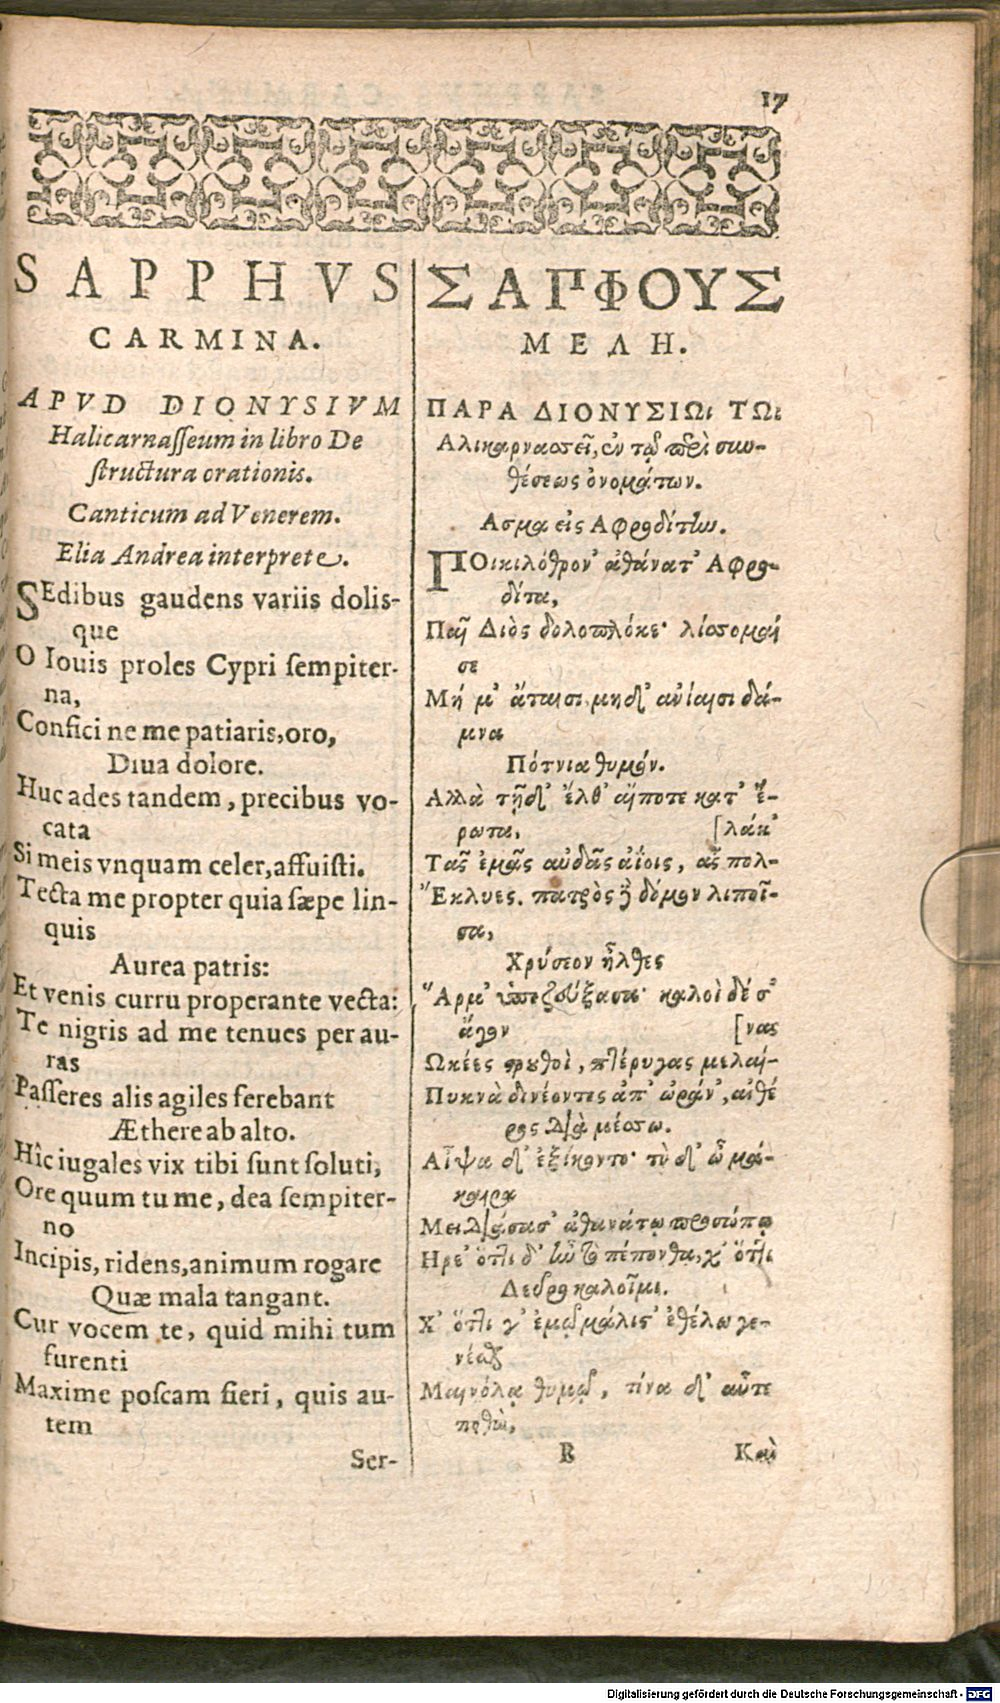 17
SAPPHVS
CARMINA.
APVD DIONYSIVM
Halicarnasseum in libro De
structura orationis.
Canticum ad Venerem.
Elia Andrea interprete.
SEdibus gaudens variis dolis-
que
O Iouis proles Cypri sempiter-
na,
Confici ne me patiaris, oro,
Diua dolore.
Huc ades tandem, precibus vo-
cata
Si meis vnquam celer, affuisti.
Tecta me propter quia sæpe lin-
quis
Aurea patris:
Et venis curru properante vecta:
Te nigris ad me tenues per au-
ras
Passeres alis agiles ferebant
Æthere ab alto.
Hîc iugales vix tibi sunt soluti,
Ore quum tu me, dea sempiter-
no
Incipis, ridens, animum rogare
Quæ mala tangant.
Cur vocem te, quid mihi tum
furenti
Maxime poscam fieri, quis au-
tem
Ser-
ΣΑΠΦΟΥΣ
ΜΕΛΗ.
ΠΑΡΑ ΔΙΟΝΥΣΙΩι ΤΩι
Αλικαρνασσεῖ, ἐν τῷ περὶ συν-
θέσεως ὀνομάτων.
Ασμα εἰς Αφροδίτην.
ΠΟικιλόθρον' ἀθάνατ' Αφρο-
δίτα,
Παῖ Διὸς δολοπλόκε· λίσσομαί
σε
Μή μ' ἄταισι μηδ' ἀνίαισι δά-
μνα
Πότνια θυμόν.
Αλλὰ τῇδ' ἔλθ' αἴποτε κατ' ἔ-
ρωτα, [λάκ'
Τᾶς ἐμᾶς αὐδᾶς ἀΐοις, ἇς πολ-
Ἔκλυες. πατρὸς δὲ δόμον λιποῖ-
σα,
Χρύσεον ἦλθες
Ἅρμ' ὑποζεύξασα· καλοὶ δέ σ'
ἄγον [νας
Ωκέες στρουθοὶ, πτέρυγας μελαί-
Πυκνὰ δινέοντες ἀπ' ὠράν', αἰθέ
ρος διὰ μέσσω.
Αἶψα δ' ἐξίκοντο· τὺ δ' ὦ μά-
καιρα
Μειδιάσασ' ἀθανάτῳ προσώπῳ
Ηρε' ὅττι δ' ἦν τὸ πέπονθα, κ' ὅττι
Δεῦρο καλοῖμι.
Χ' ὅττι γ' ἐμῷ μάλιστ' ἐθέλω γε-
νέσθαι
Μαινόλᾳ θυμῷ, τίνα δ' αὖτε
πειθὼ,
B Καὶ
Digitalisierung gefördert durch die Deutsche Forschungsgemeinschaft - DFG